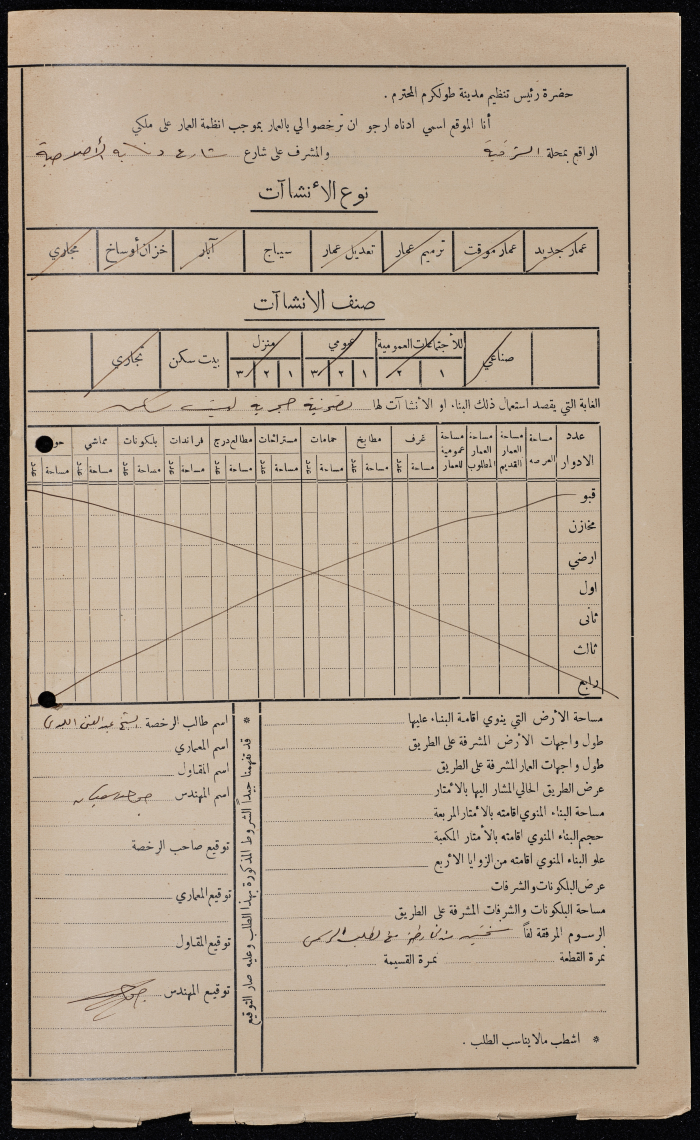 حضرة رئيس تنظيم مدينة طولكرم المحترم .
أنا الموقع اسمي ادناه ارجو ان ترخصوا لي بالعمار بموجب انظمة العمار على ملكي
الواقع بمحلة الشرقية والمشرف على شارع شارع
نوع الأنشاآت
عمار جديد عمار موقت ترميم عمار تعديل عمار سياج آبار خزان أوساخ مجاري
صنف الانشاآت
صناعي للأجتماعات العمومية عومي منزل بيت سكن تجاري
١ ٢ ١ ٢ ٣ ١ ٢ ٣
الغاية التي يقصد استعمال ذلك البناء او الأنشاآت لها
عدد الادوار مساحة العرصه مساحة العمار القديم مساحة العمار المطلوب مساحة عمومية للعمار غرف مطابخ حمامات مستراحات مطالع درج فراندات بلكونات مماشي
مساحة عدد مساحة عدد مساحة عدد مساحة عدد مساحة عدد مساحة عدد مساحة عدد مساحة عدد مساحة عدد
قبو
مخازن
ارضي
اول
ثاني
ثالث
رابع
مساحة الأرض التي ينوي اقامة البناء عليها
طول واجهات الأرض المشرفة على الطريق
طول واجهات العمار المشرفة على الطريق
عرض الطريق الحالي المشار اليها بالأمتار
مساحة البناء المنوي اقامته بالأمتار المربعة
حجم البناء المنوي اقامته بالأمتار المكعبة
علو البناء المنوي اقامته من الزوايا الأربع
عرض البلكونات والشرفات
مساحة البلكونات والشرفات المشرفة على الطريق
الرسوم المرفقة لفاً
نمرة القطعة نمرة القسيمة
* اشطب مالا يناسب الطلب .
* قد تفهمنا جيداً الشروط المذكورة بهذا الطلب وعليه صار التوقيع
اسم طالب الرخصة
اسم المعماري
اسم المقاول
اسم المهندس
توقيع صاحب الرخصة
توقيع المعماري
توقيع المقاول
توقيع المهندس